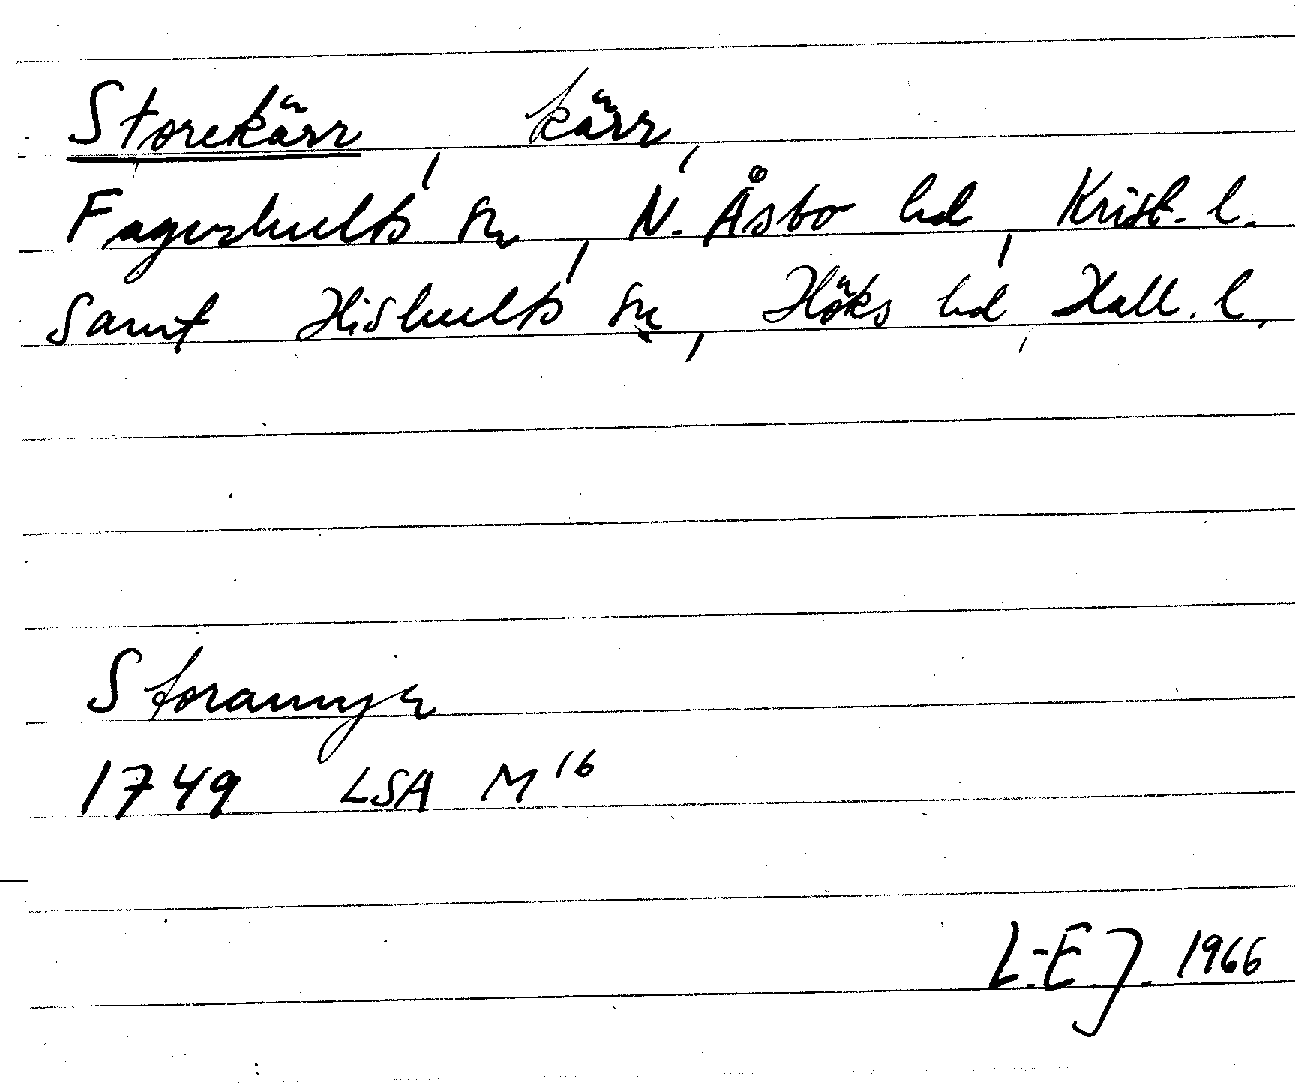 Storekärr, kärr,
Fagerhults sn, N. Åsbo hd, Krist. l.
Samt Hishults sn, Höks hd, Hall. l.
Storamyr
1749 LSA M 16
L-E J. 1966